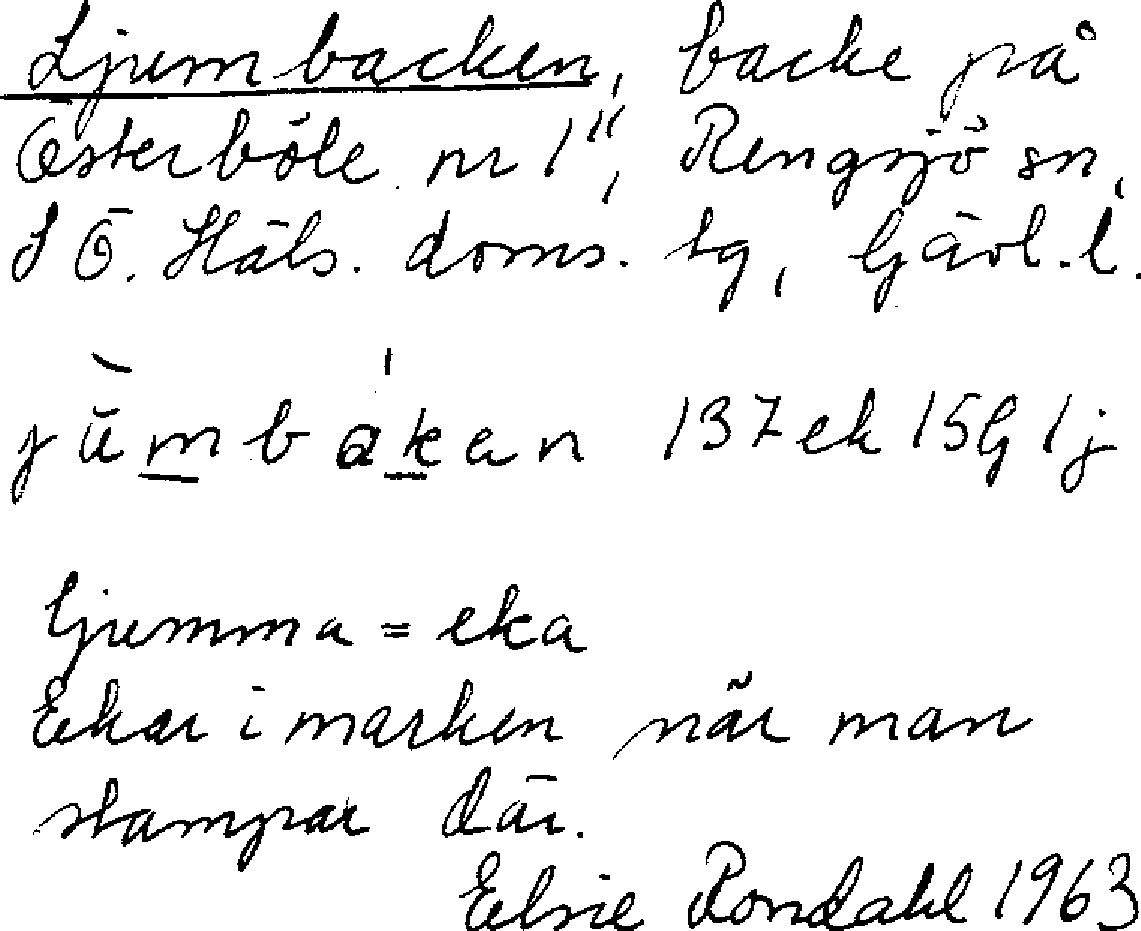 Ljumbacken, backe på
Österböle nr 1", Rengsjö sn,
S Ö. Häls. doms. tg, Gävl. l.
jùmbákan 137ek 15G 1j
ljumma = eka
Ekar i marken när man
stampar där.
Elsie Rondahl 1963